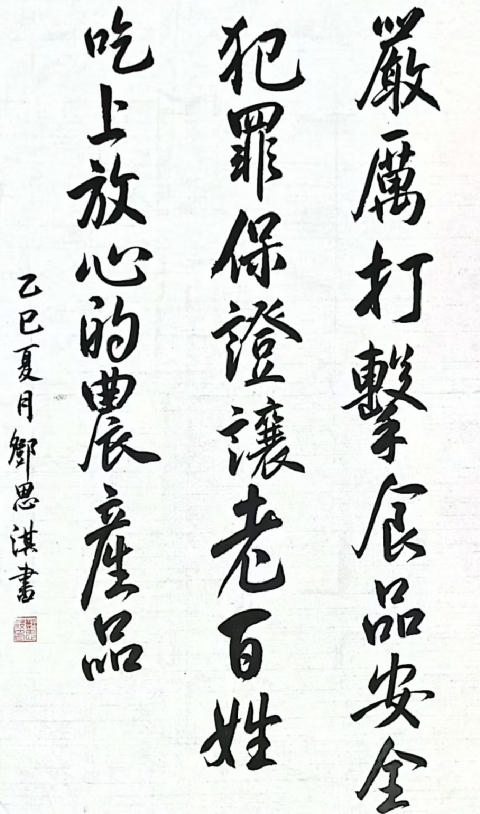 嚴厲打擊食品安全
犯罪保證讓老百姓
吃上放心的農產品
乙巳夏月鄧思淇書